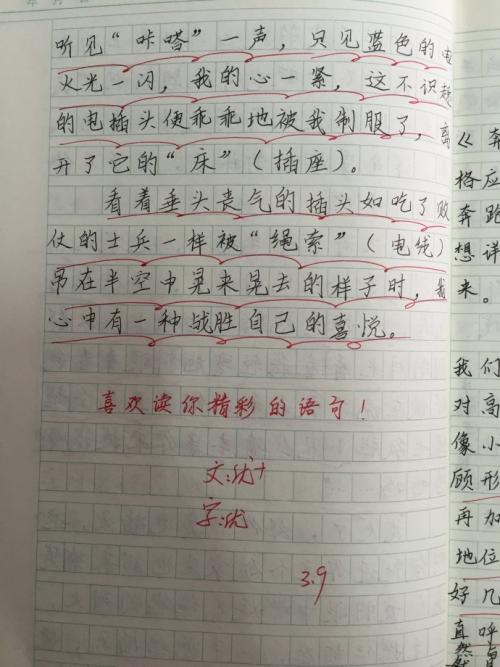 听见“咔嗒”一声，只见蓝色的电
火光一闪，我的心一紧，这不识趣
的电插头便乖乖地被我制服了，离
开了它的“床”（插座）。
看着垂头丧气的插头如吃了败
仗的士兵一样被“绳索”（电线）
吊在半空中晃来晃去的样子时，我
心中有一种战胜自己的喜悦。
喜欢读你精彩的语句！
文:优+
字:优
3.9
《奔
格应
奔跑
想详
来。
我们
对高
像小
顾形
再加
地位
好几
直呼